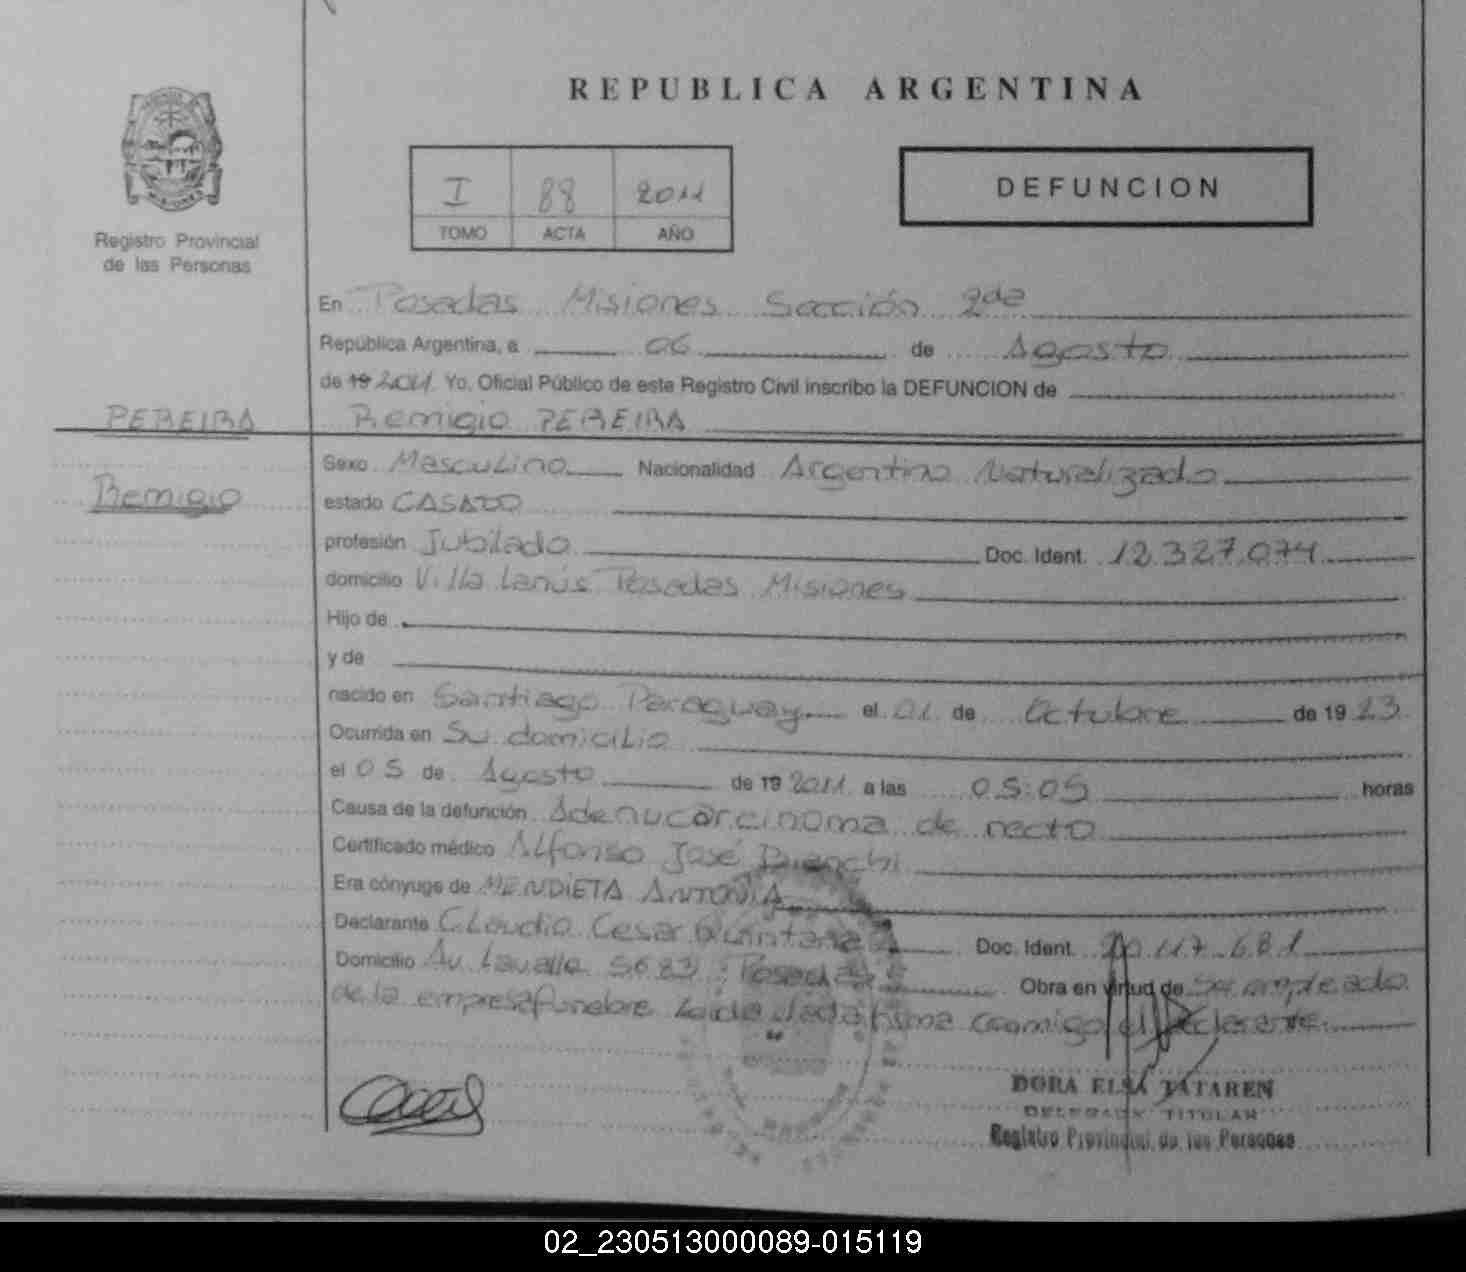 REPUBLICA ARGENTINA
I 88 2011
TOMO ACTA AÑO
DEFUNCION
Registro Provincial
de las Personas
En Posadas Misiones Sección 2da
República Argentina, a 06 de Agosto
de 19 2011 Yo, Oficial Público de este Registro Civil inscribo la DEFUNCION de
PEREIRA Remigio PEREIRA
Sexo Masculino Nacionalidad Argentino Naturalizado
Remigio
estado CASADO
profesión Jubilado Doc. Ident. 12.327.074
domicilio Villa Lanús Posadas Misiones
Hijo de
y de
nacido en Santiago Paraguay el 01 de Octubre de 19 23
Ocurrida en Su domicilio
el 05 de Agosto de 19 2011 a las 05:05 horas
Causa de la defunción Adenucarcinoma de recto
Certificado médico Alfonso José Bianchi
Era cónyuge de MENDIETA ANTONIA
Declarante Claudio Cesar Quintana Doc. Ident. 20.117.681
Domicilio Av. Lavalle 5683 Posadas Obra en virtud de Ser empleado
de la empresa funebre Leida el acta firma conmigo el declarante
DORA ELSA TATAREN
DELEGADA TITULAR
Registro Provincial de las Personas
02_230513000089-015119